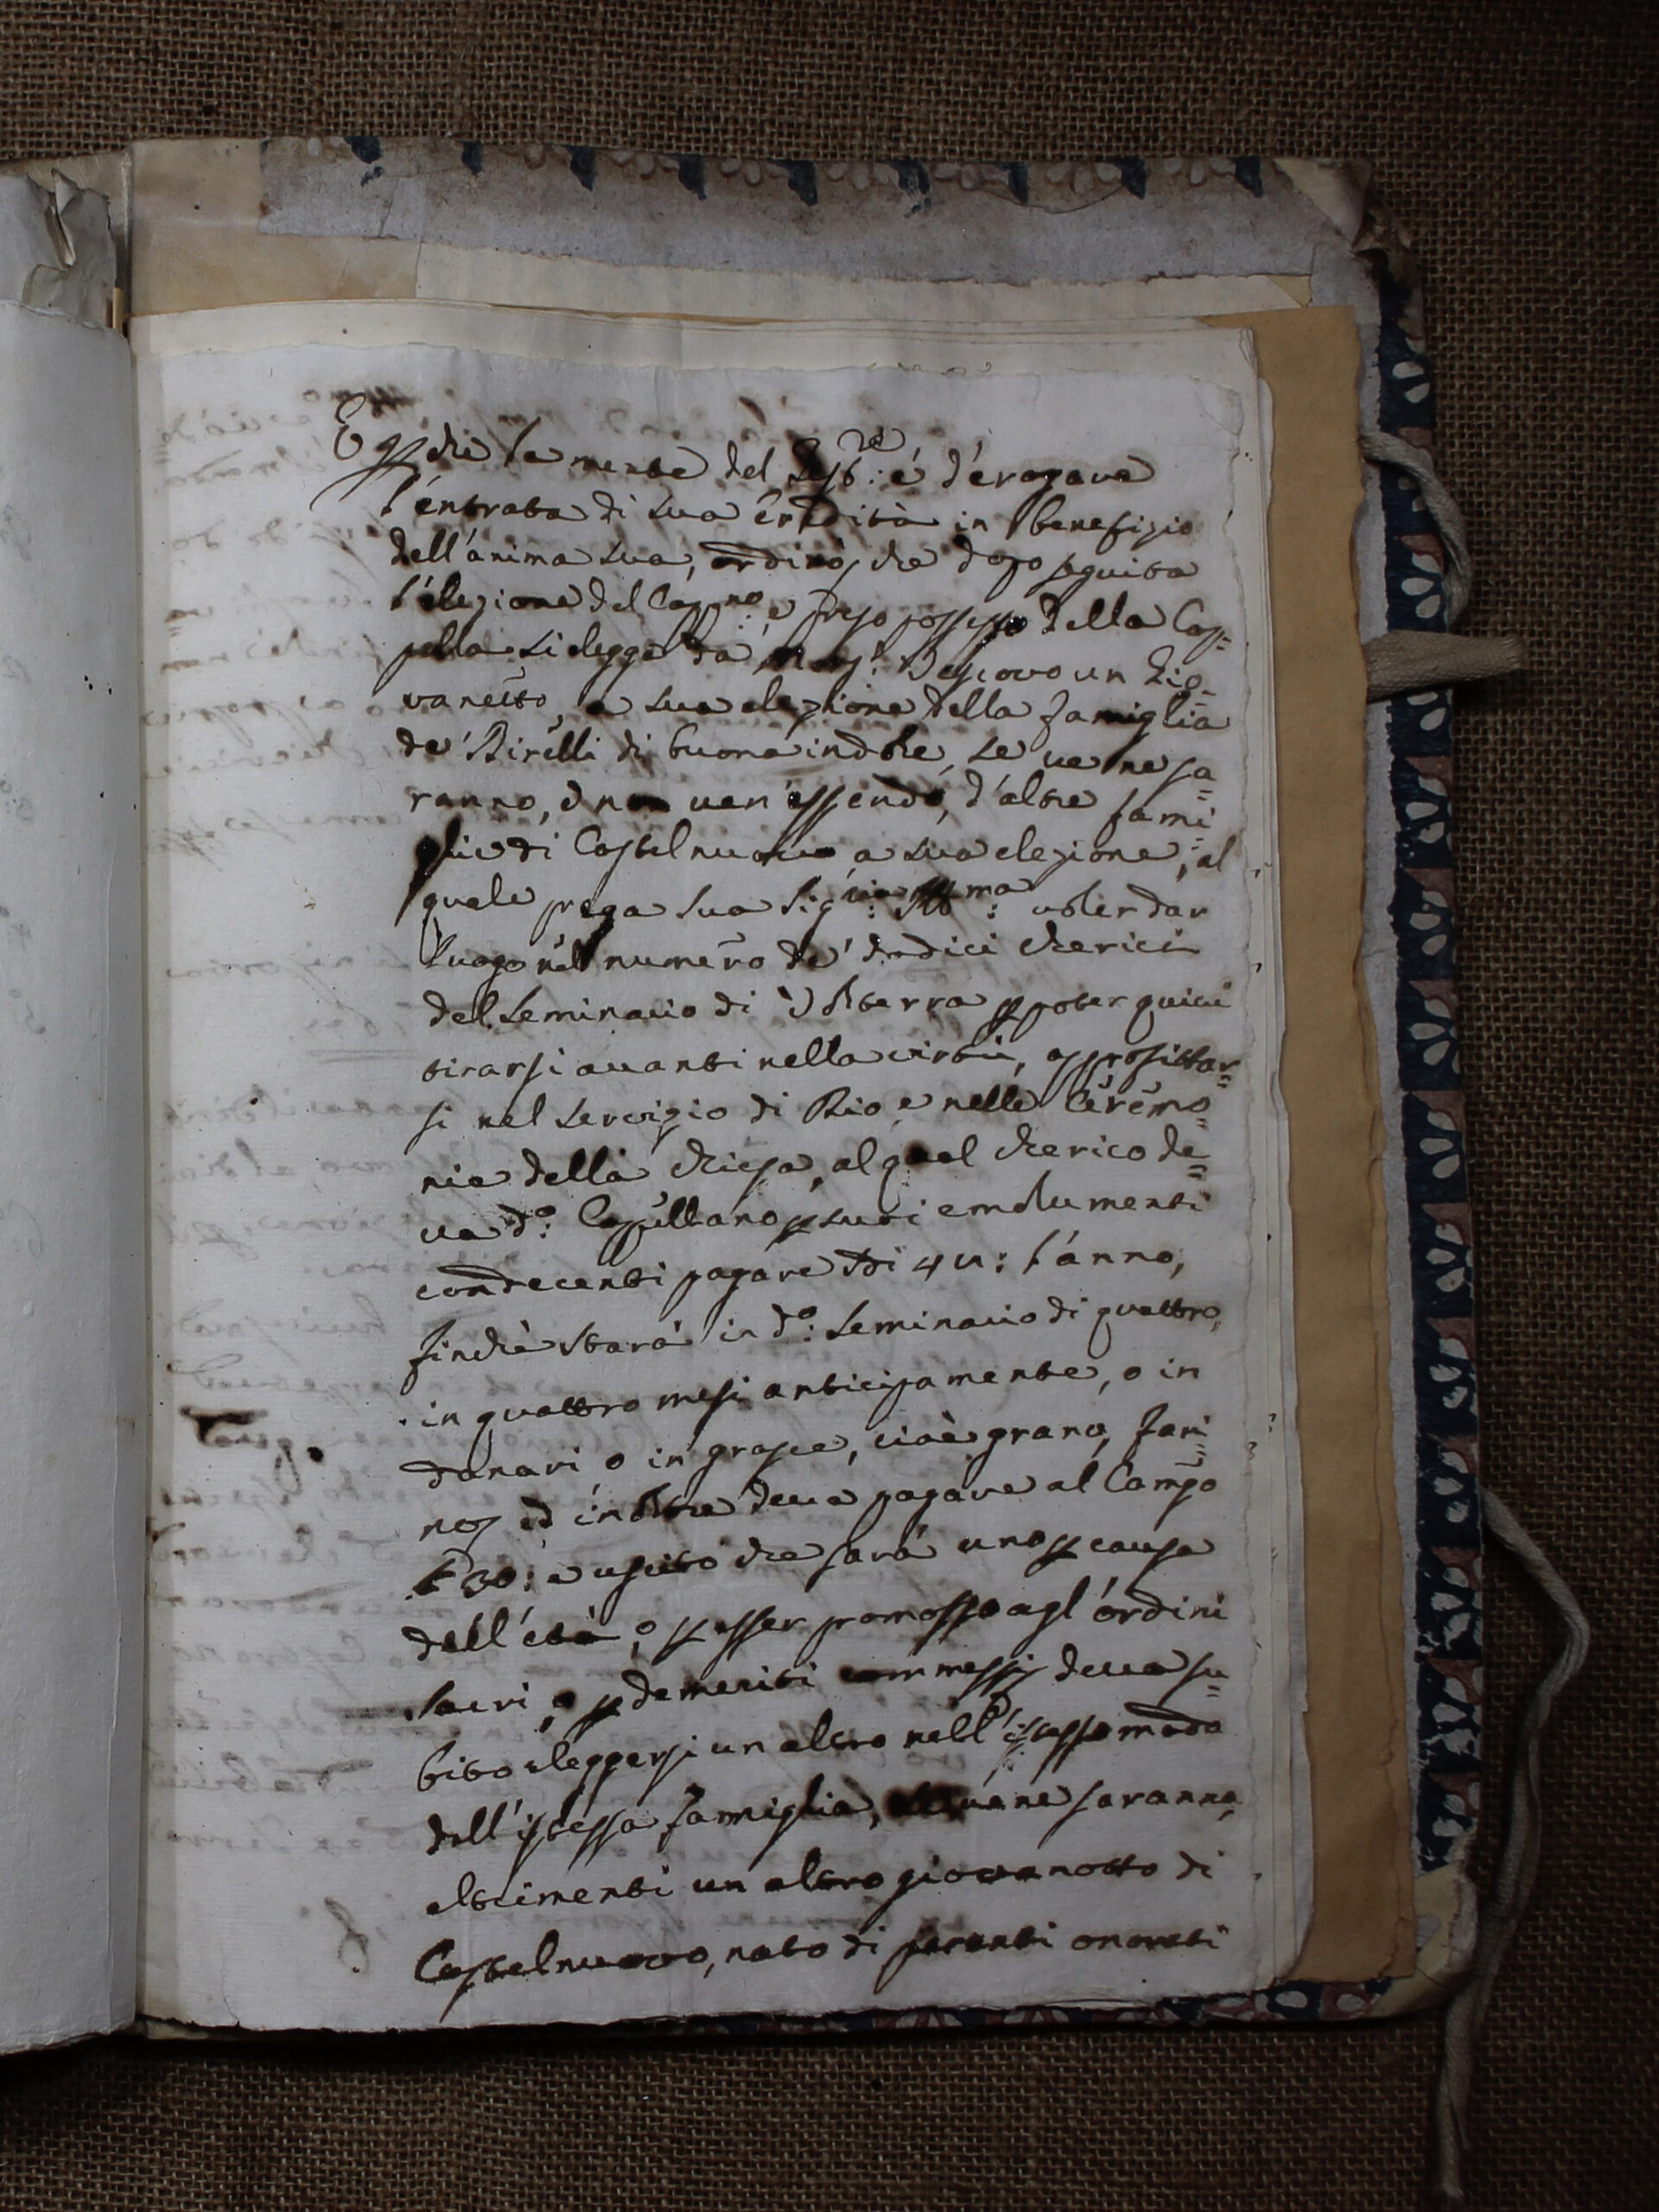 E p che la mente del Test:re è d'erogare
l'entrata di sua eredità in benefizio
dell'anima sua, ordinò, che dopo seguita
l'elezione del Capp:no, e preso possesso della Cap=
pella si elegga da Mons:r Vescovo un Gio=
vanetto, a sua elezione della famiglia
de' Birelli di buona indole, se ve ne sa=
ranno, e non ven'essendo, d'altre fami=
glie di Castelnuovo a sua elezione, al
quale prega sua Sig:ria Ill:ma voler dar
luogo nel numero de' dodici Cherici
del Seminario di Volterra p poter quivi
tirarsi avanti nella virtù, approfittar=
si nel servizio di Dio, e nelle Ceremo=
nie della Chiesa, al qual Cherico de=
va d:o Cappellano p suoi emolumenti
condecenti pagare di 4 u: l'anno,
finchè starà in d:o Seminario di quattro,
in quattro mesi anticipamente, o in
danari, o in grasce, cioè grano, fari=
no, ed inoltre deva pagare al Campo
£ 30: e uscito che sarà uno p causa
dell'età, o p esser promosso agl'ordini
sacri, o p demeriti commessi, deva su=
bito eleggersi un altro nell'istesso modo
dell'istessa famiglia, se ve ne saranno,
altrimenti un altro giovanotto di
Castelnuovo, nato di parenti onorati